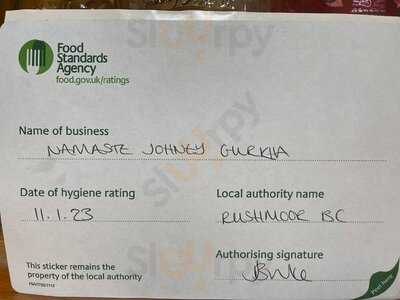 Food
Standards
Agency
food.gov.uk/ratings
Name of business
NAMASTE JOHNEY GURKHA
Date of hygiene rating Local authority name
11.1.23 RUSHMOOR BC
Authorising signature
This sticker remains the
property of the local authority
Peel here
sluurpy
sluurpy
sluurpy